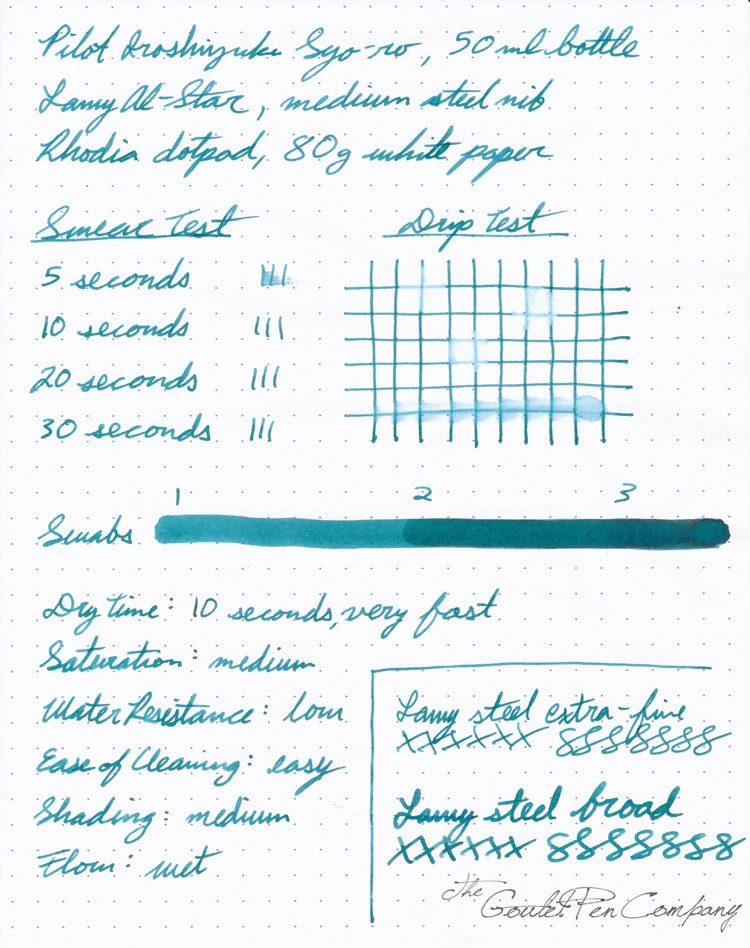 Pilot Iroshizuku Syo-ro, 50ml bottle
Lamy Al-Star, medium steel nib
Rhodia dotpad, 80g white paper
Smear Test
Drip Test
5 seconds
10 seconds
20 seconds
30 seconds
1 2 3
Swabs
Dry time: 10 seconds, very fast
Saturation: medium
Water Resistance: low
Ease of Cleaning: easy
Shading: medium
Flow: wet
Lamy steel extra-fine
xxxxxx 8888888
Lamy steel broad
xxxxxx 8888888
The Goulet Pen Company